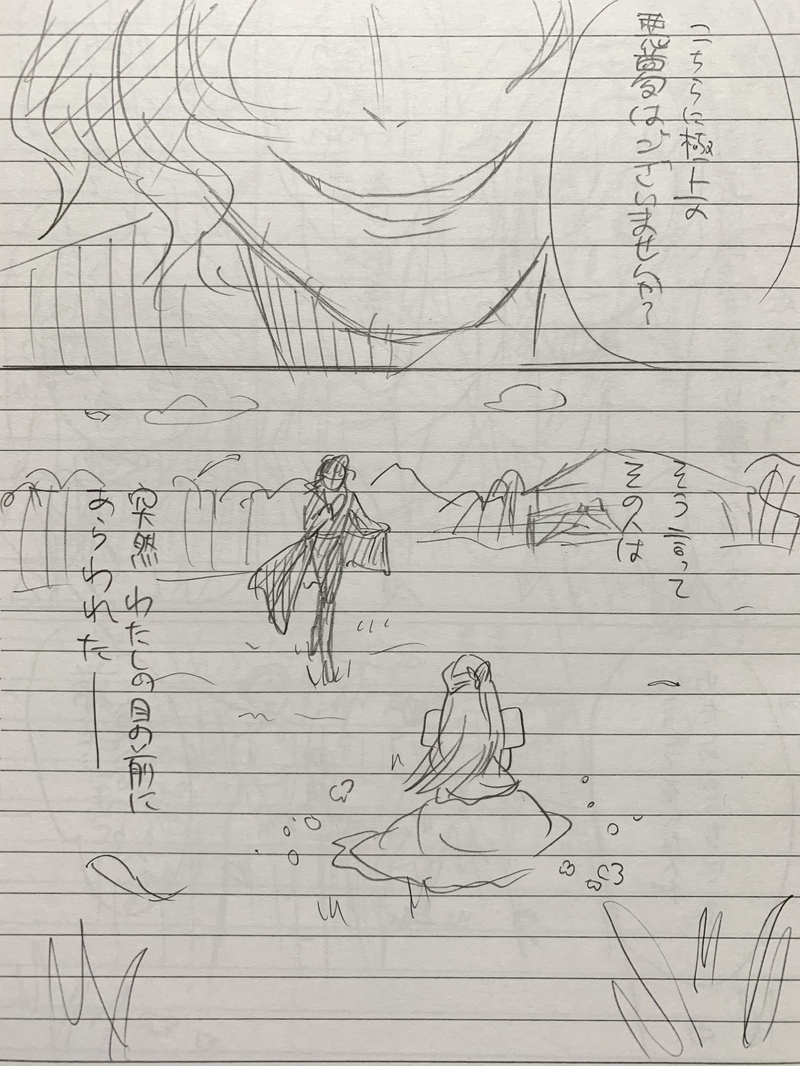 こちらに極上の
悪夢はございませんか?
そう言って
その人は
突然 わたしの目の前に
あらわれた――